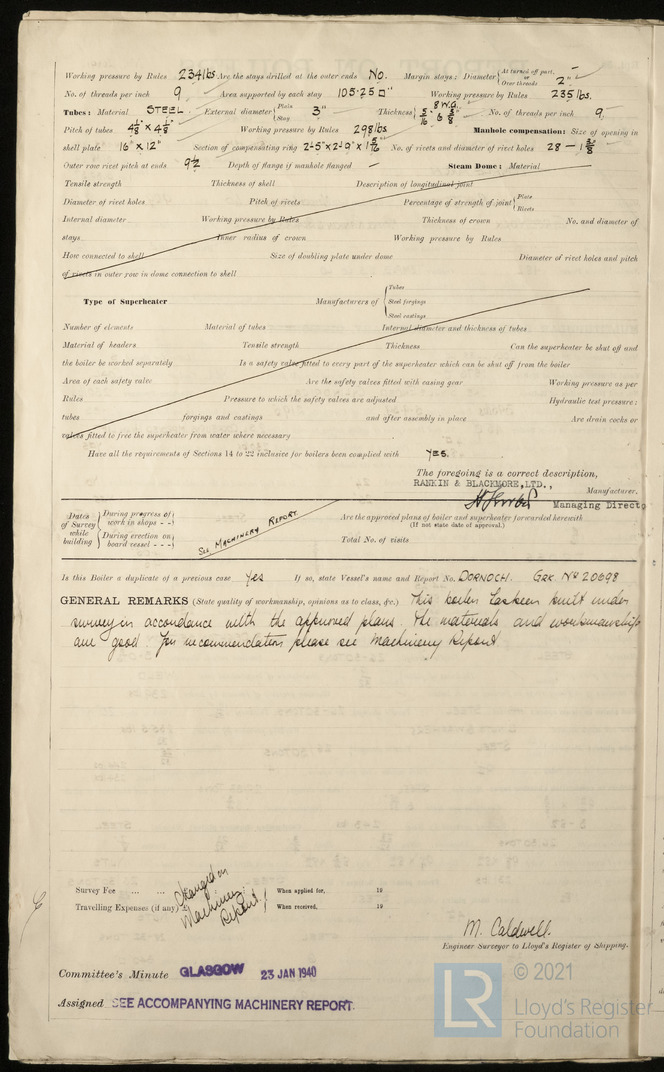 Working pressure by Rules 234 lbs Are the stays drilled at the outer ends No. Margin stays: Diameter { At turned off part, or Over threads 2"
No. of threads per inch 9 Area supported by each stay 105·75 □" Working pressure by Rules 235 lbs.
Tubes: Material STEEL External diameter { Plain Stay 3" Thickness { 8 W.G. 5/16 & 3/8" No. of threads per inch 9
Pitch of tubes 4 1/8" × 4 1/8" Working pressure by Rules 298 lbs Manhole compensation: Size of opening in
shell plate 16" × 12" Section of compensating ring 2'-5" × 2'-9" × No. of rivets and diameter of rivet holes 28 — 1 3/8
Outer row rivet pitch at ends 9 1/2 Depth of flange if manhole flanged — Steam Dome: Material
Tensile strength Thickness of shell Description of longitudinal joint
Diameter of rivet holes Pitch of rivets Percentage of strength of joint { Plate Rivets
Internal diameter Working pressure by Rules Thickness of crown No. and diameter of
stays Inner radius of crown Working pressure by Rules
How connected to shell Size of doubling plate under dome Diameter of rivet holes and pitch
of rivets in outer row in dome connection to shell
Type of Superheater Manufacturers of { Tubes Steel forgings Steel castings
Number of elements Material of tubes Internal diameter and thickness of tubes
Material of headers Tensile strength Thickness Can the superheater be shut off and
the boiler be worked separately Is a safety valve fitted to every part of the superheater which can be shut off from the boiler
Area of each safety valve Are the safety valves fitted with easing gear Working pressure as per
Rules Pressure to which the safety valves are adjusted Hydraulic test pressure:
tubes forgings and castings and after assembly in place Are drain cocks or
valves fitted to free the superheater from water where necessary
Have all the requirements of Sections 14 to 22 inclusive for boilers been complied with YES.
The foregoing is a correct description,
RANKIN & BLACKMORE, LTD., Manufacturer.
Managing Directo
Dates of Survey while building { During progress of work in shops - - } { During erection on board vessel - - - }
See MACHINERY REPORT.
Are the approved plans of boiler and superheater forwarded herewith
(If not state date of approval.)
Total No. of visits
Is this Boiler a duplicate of a previous case Yes If so, state Vessel's name and Report No. DORNOCH. GRK. No 20698
GENERAL REMARKS (State quality of workmanship, opinions as to class, &c.) This boiler has been built under
survey in accordance with the approved plans. The materials and workmanship
are good. For recommendation please see Machinery Report
Survey Fee ... ... When applied for, 19
Travelling Expenses (if any) £ When received, 19
Charged on
Machinery
Report.
M. Caldwell.
Engineer Surveyor to Lloyd's Register of Shipping.
Committee's Minute GLASGOW 23 JAN 1940
Assigned SEE ACCOMPANYING MACHINERY REPORT.
LR © 2021
Lloyd's Register
Foundation